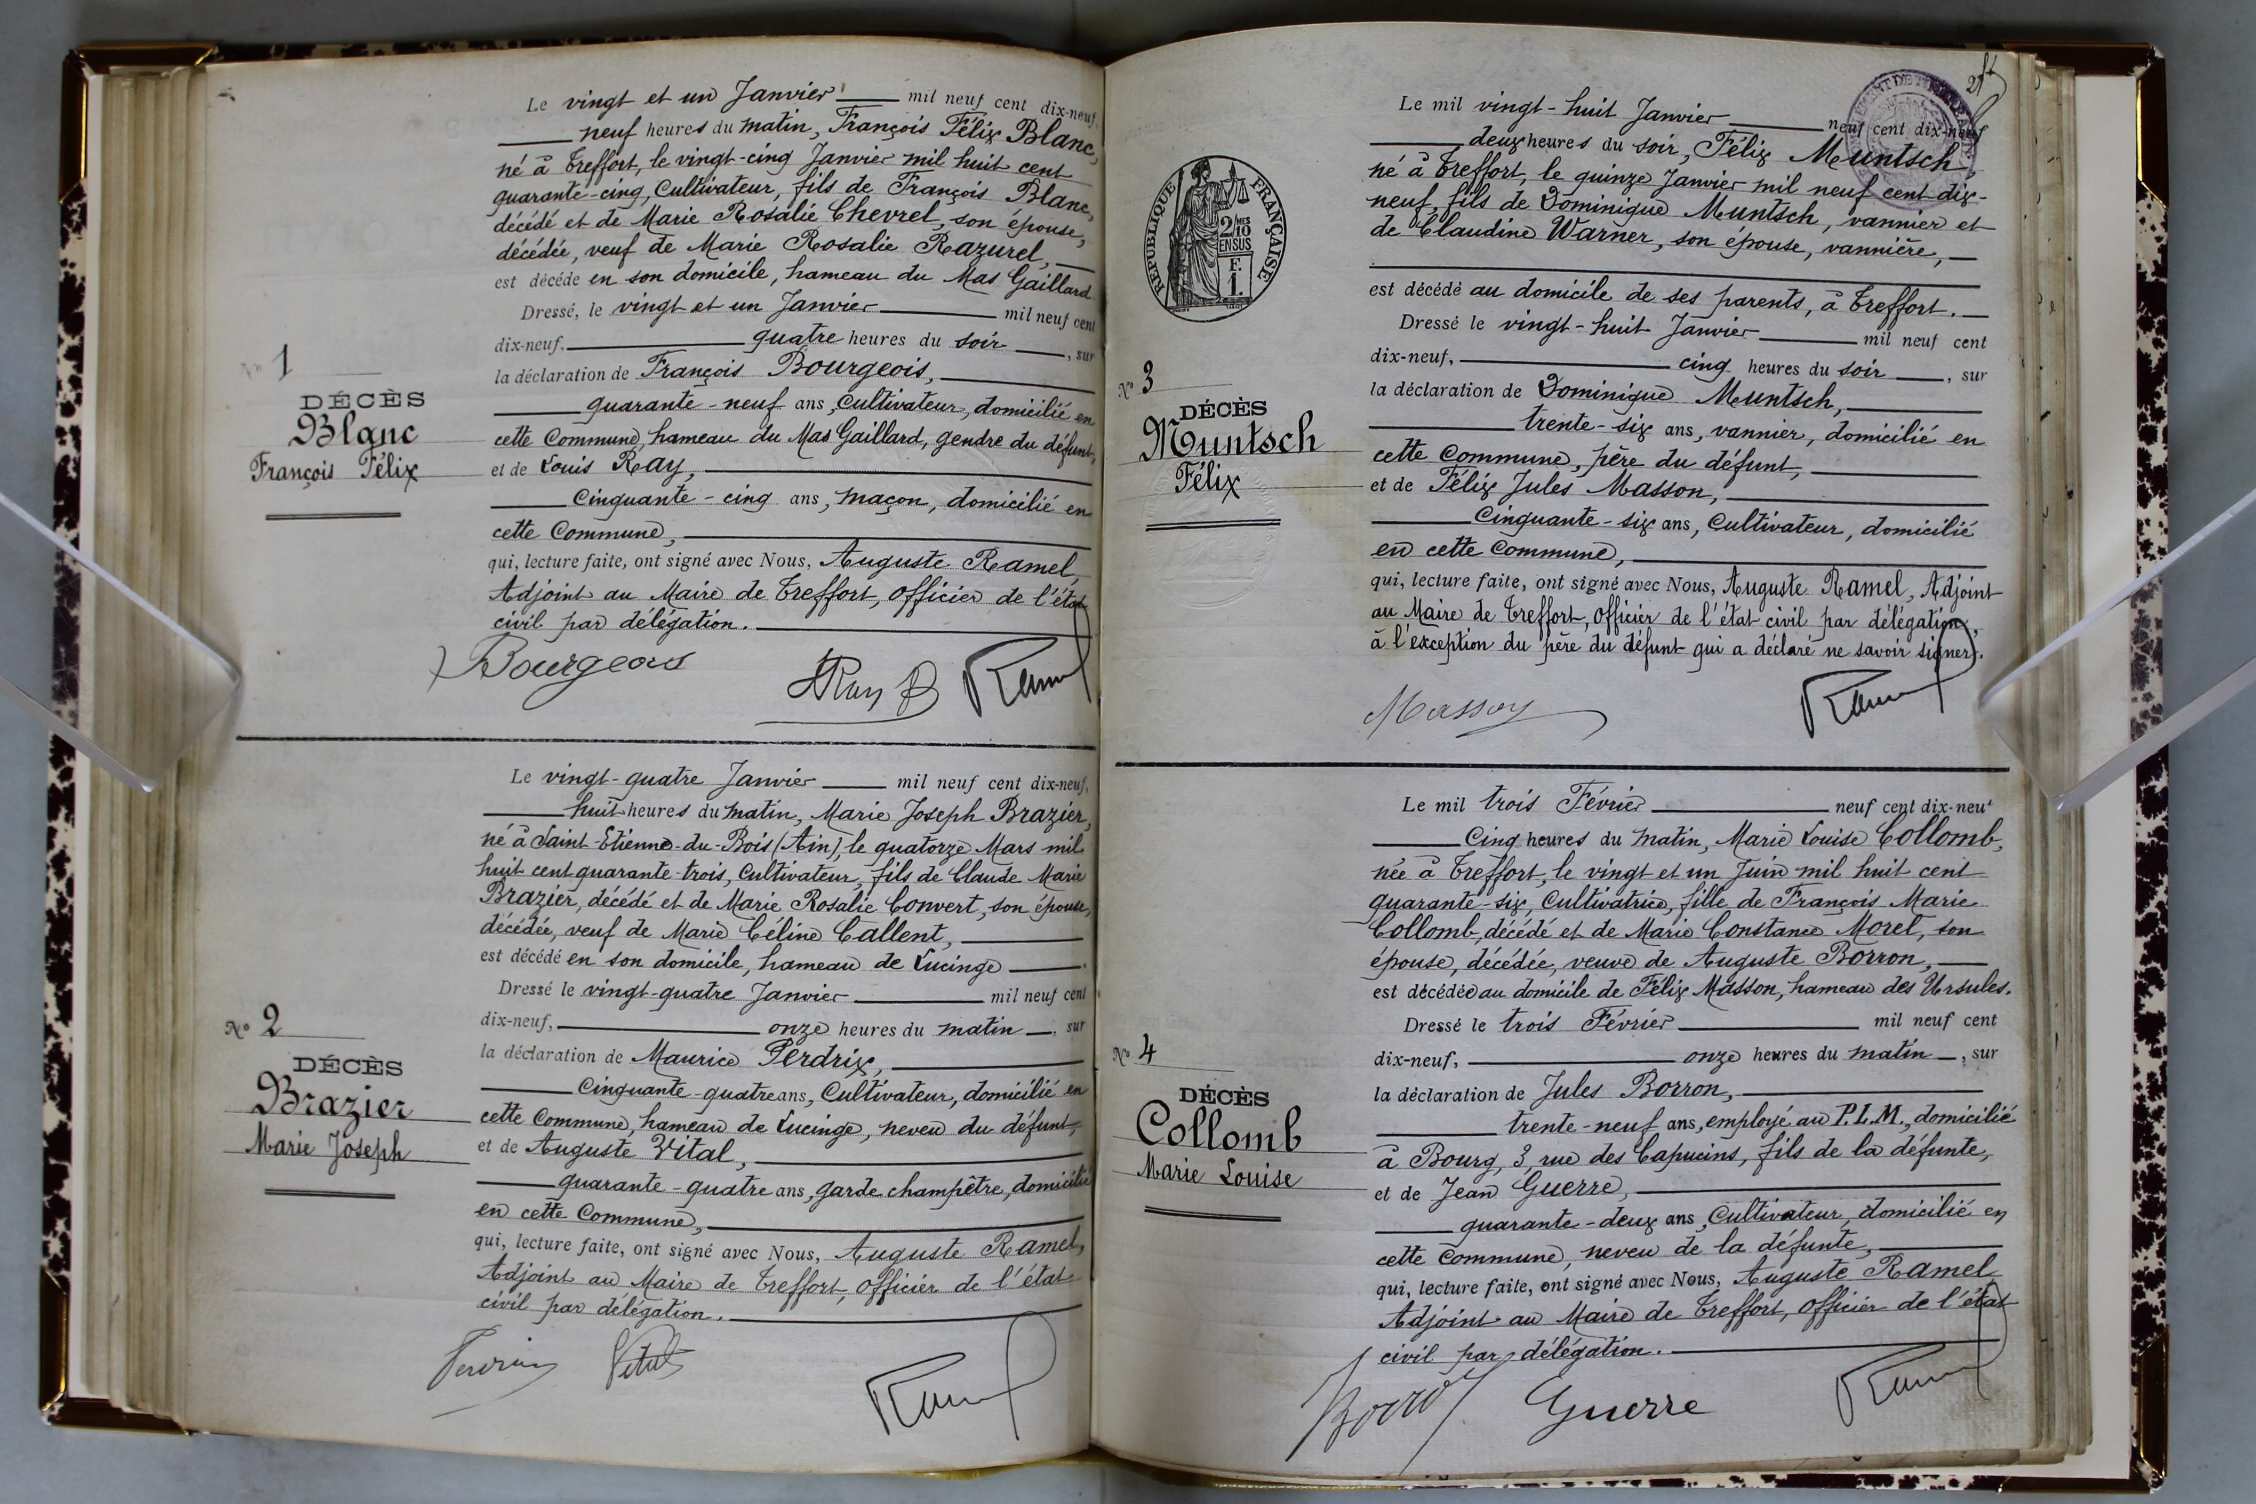 Le vingt et un Janvier mil neuf cent dix-neuf,
neuf heures du matin, François Félix Blanc,
né à Treffort, le vingt-cinq Janvier mil huit cent
quarante-cinq, Cultivateur, fils de François Blanc,
décédé et de Marie Rosalie Chevrel, son épouse,
décédée, veuf de Marie Rosalie Razurel,
est décédé en son domicile, hameau du Mas Gaillard
Dressé, le vingt et un Janvier mil neuf cent
dix-neuf, quatre heures du soir, sur
la déclaration de François Bourgeois,
quarante-neuf ans, Cultivateur, domicilié en
cette Commune, hameau du Mas Gaillard, gendre du défunt,
et de Louis Ray,
Cinquante-cinq ans, maçon, domicilié en
cette Commune,
qui, lecture faite, ont signé avec Nous, Auguste Ramel,
Adjoint au Maire de Treffort, Officier de l'état
civil par délégation.
Bourgeois
Ray
Ramel
No 1
DÉCÈS
Blanc
François Félix
Le vingt-quatre Janvier mil neuf cent dix-neuf,
huit heures du matin, Marie Joseph Brazier,
né à Saint-Etienne-du-Bois (Ain), le quatorze Mars mil
huit cent quarante-trois, Cultivateur, fils de Claude Marie
Brazier, décédé et de Marie Rosalie Convert, son épouse,
décédée, veuf de Marie Céline Callent,
est décédé en son domicile, hameau de Lucinge
Dressé le vingt-quatre Janvier mil neuf cent
dix-neuf, onze heures du matin, sur
la déclaration de Maurice Perdrix,
Cinquante-quatre ans, Cultivateur, domicilié en
cette Commune, hameau de Lucinge, neveu du défunt,
et de Auguste Vital,
quarante-quatre ans, garde champêtre, domicilié
en cette Commune,
qui, lecture faite, ont signé avec Nous, Auguste Ramel,
Adjoint au Maire de Treffort, Officier de l'état
civil par délégation.
Perdrix
Vital
Ramel
No 2
DÉCÈS
Brazier
Marie Joseph
Le mil vingt-huit Janvier neuf cent dix-neuf
deux heures du soir, Félix Muntsch,
né à Treffort, le quinze Janvier mil neuf cent dix-
neuf, fils de Dominique Muntsch, vannier et
de Claudine Warner, son épouse, vannière,
est décédé au domicile de ses parents, à Treffort.
Dressé le vingt-huit Janvier mil neuf cent
dix-neuf, cinq heures du soir, sur
la déclaration de Dominique Muntsch,
trente-six ans, vannier, domicilié en
cette Commune, père du défunt,
et de Félix Jules Masson,
Cinquante-six ans, Cultivateur, domicilié
en cette Commune,
qui, lecture faite, ont signé avec Nous, Auguste Ramel, Adjoint
au Maire de Treffort, Officier de l'état civil par délégation,
à l'exception du père du défunt qui a déclaré ne savoir signer.
Masson
Ramel
RÉPUBLIQUE FRANÇAISE
2/10 MES
EN SUS
F.
1.
No 3
DÉCÈS
Muntsch
Félix
Le mil trois Février neuf cent dix-neuf
Cinq heures du matin, Marie Louise Collomb,
née à Treffort, le vingt et un Juin mil huit cent
quarante-six, Cultivatrice, fille de François Marie
Collomb, décédé et de Marie Constance Morel, son
épouse, décédée, veuve de Auguste Borron,
est décédée au domicile de Félix Masson, hameau des Ursules.
Dressé le trois Février mil neuf cent
dix-neuf, onze heures du matin, sur
la déclaration de Jules Borron,
trente-neuf ans, employé au P.L.M., domicilié
à Bourg, 3, rue des Capucins, fils de la défunte,
et de Jean Guerre,
quarante-deux ans, Cultivateur, domicilié en
cette Commune, neveu de la défunte,
qui, lecture faite, ont signé avec Nous, Auguste Ramel
Adjoint au Maire de Treffort, Officier de l'état
civil par délégation.
Borron
Guerre
Ramel
No 4
DÉCÈS
Collomb
Marie Louise